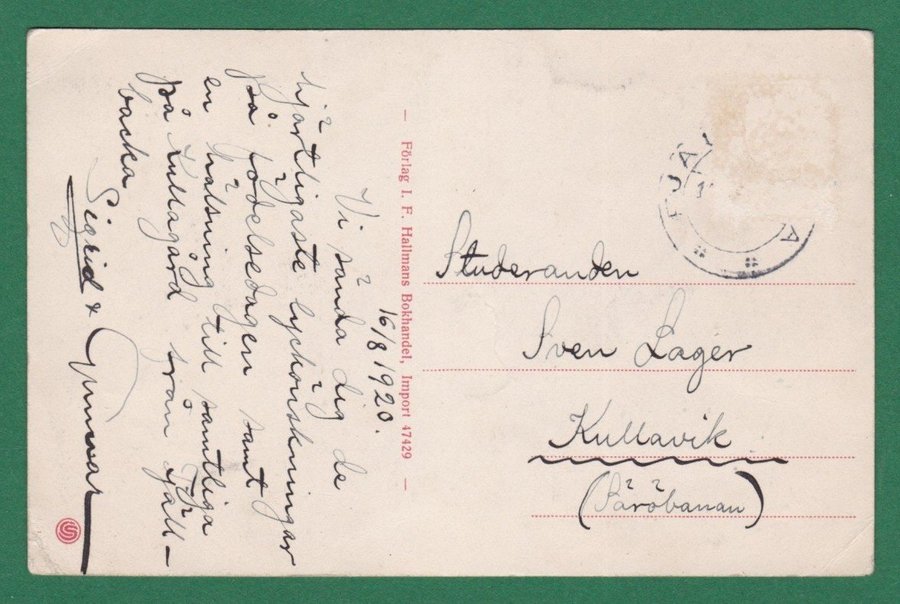 16/8 1920.
Vi sända dig de
hjärtligaste lyckönskningar
på födelsedagen samt
en hälsning till samtliga
på Kullagård från Fjäll-
backa
Sigrid & Gunnar
– Förlag I. F. Hallmans Bokhandel, Import 47429 –
FJÄ
A
Studeranden
Sven Lager
Kullavik
(Säröbanan)